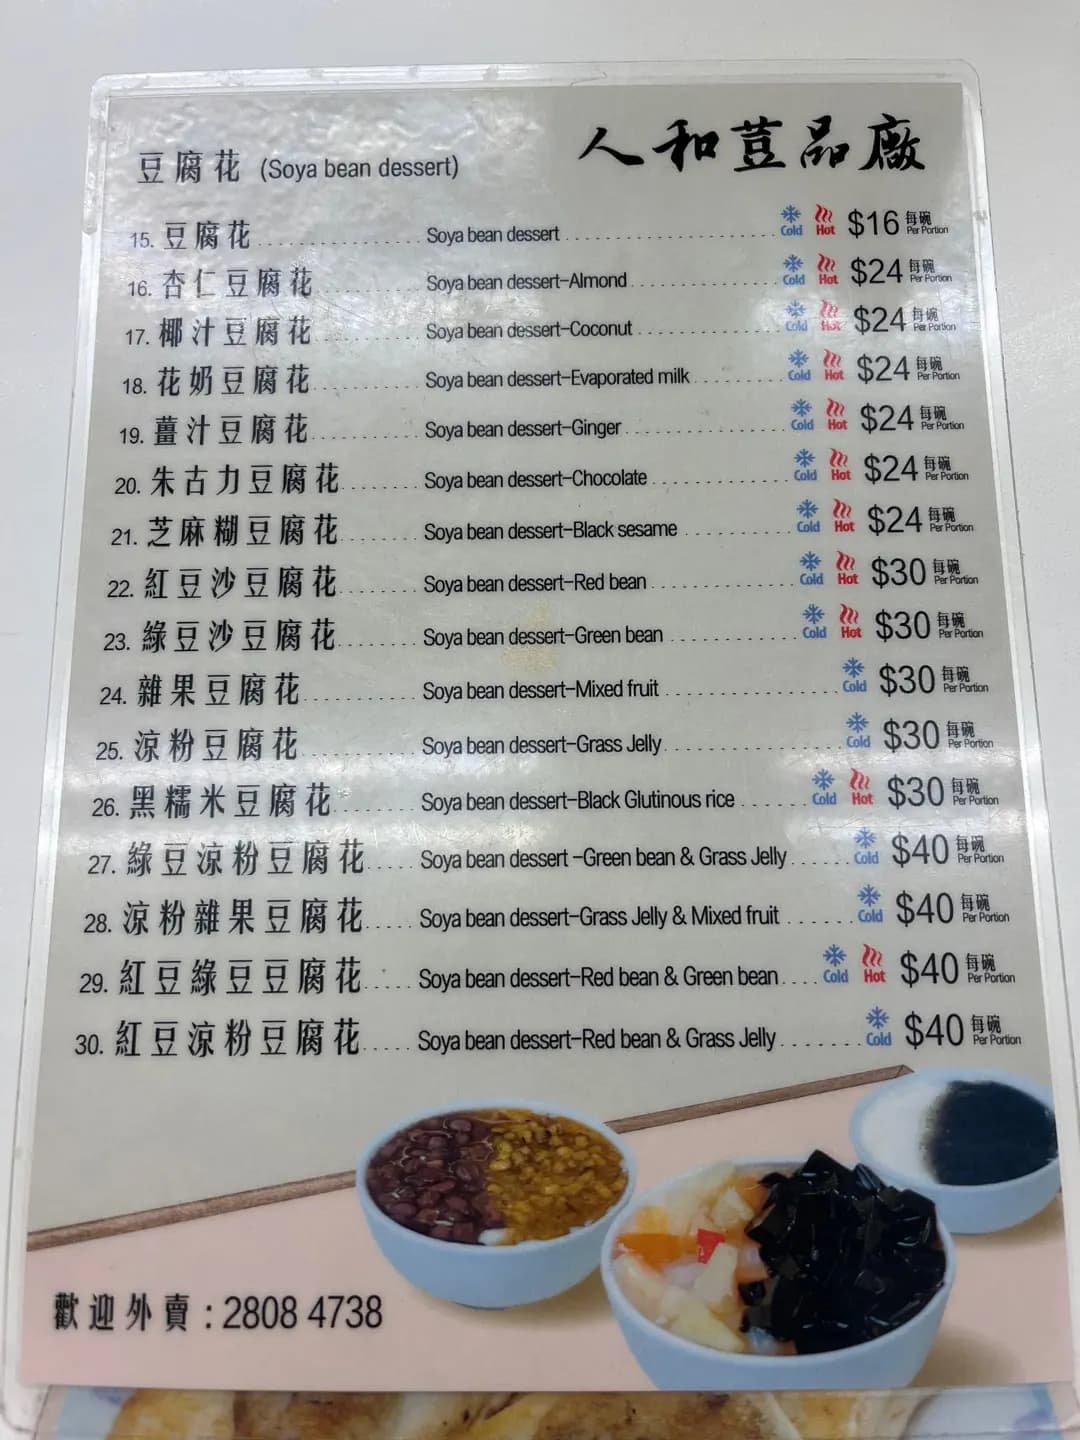 人和荳品廠
豆腐花 (Soya bean dessert)
15. 豆腐花 Soya bean dessert Cold Hot $16 每碗 Per Portion
16. 杏仁豆腐花 Soya bean dessert-Almond Cold Hot $24 每碗 Per Portion
17. 椰汁豆腐花 Soya bean dessert-Coconut Cold Hot $24 每碗 Per Portion
18. 花奶豆腐花 Soya bean dessert-Evaporated milk Cold Hot $24 每碗 Per Portion
19. 薑汁豆腐花 Soya bean dessert-Ginger Cold Hot $24 每碗 Per Portion
20. 朱古力豆腐花 Soya bean dessert-Chocolate Cold Hot $24 每碗 Per Portion
21. 芝麻糊豆腐花 Soya bean dessert-Black sesame Cold Hot $24 每碗 Per Portion
22. 紅豆沙豆腐花 Soya bean dessert-Red bean Cold Hot $30 每碗 Per Portion
23. 綠豆沙豆腐花 Soya bean dessert-Green bean Cold Hot $30 每碗 Per Portion
24. 雜果豆腐花 Soya bean dessert-Mixed fruit Cold $30 每碗 Per Portion
25. 涼粉豆腐花 Soya bean dessert-Grass Jelly Cold $30 每碗 Per Portion
26. 黑糯米豆腐花 Soya bean dessert-Black Glutinous rice Cold Hot $30 每碗 Per Portion
27. 綠豆涼粉豆腐花 Soya bean dessert -Green bean & Grass Jelly Cold $40 每碗 Per Portion
28. 涼粉雜果豆腐花 Soya bean dessert-Grass Jelly & Mixed fruit Cold $40 每碗 Per Portion
29. 紅豆綠豆豆腐花 Soya bean dessert-Red bean & Green bean Cold Hot $40 每碗 Per Portion
30. 紅豆涼粉豆腐花 Soya bean dessert-Red bean & Grass Jelly Cold $40 每碗 Per Portion
歡迎外賣 : 2808 4738